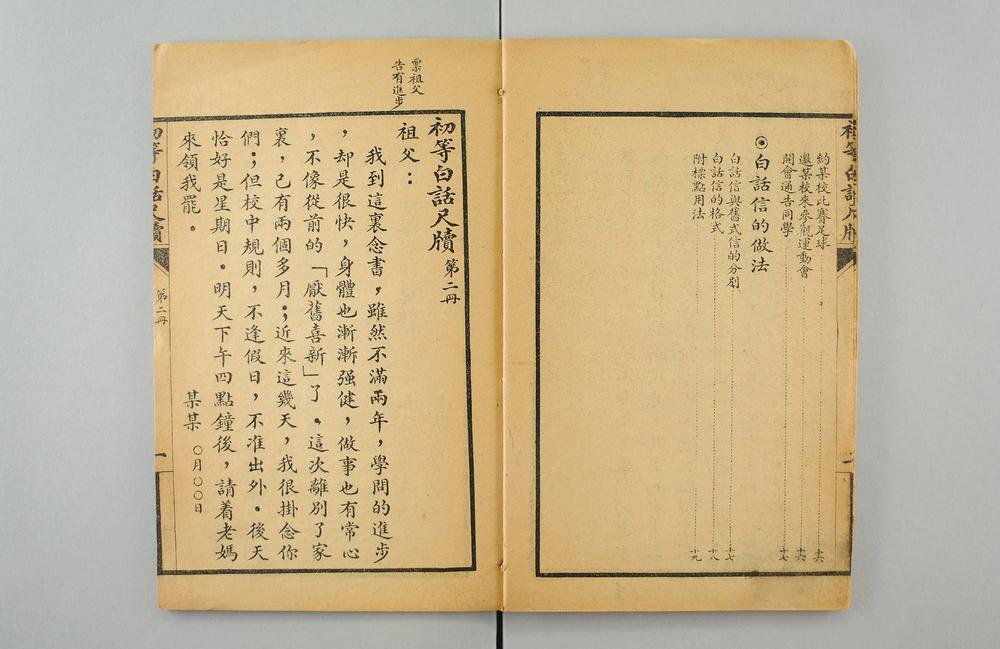 約某校比賽足球 十六
邀某校來參觀運動會 十六
開會通告同學 十七
⊙白話信的做法
白話信與舊式信的分別 十七
白話信的格式 十八
附標點用法 十九
稟祖父
告有進步
初等白話尺牘 第二冊
祖父：
我到這裏念書，雖然不滿兩年，學問的進步
，却是很快，身體也漸漸强健，做事也有常心
，不像從前的「厭舊喜新」了。這次離别了家
裏，已有兩個多月；近來這幾天，我很掛念你
們；但校中規則，不逢假日，不准出外。後天
恰好是星期日。明天下午四點鐘後，請着老媽
來領我罷。
某某 〇月〇〇日
初等白話尺牘
第二冊
一